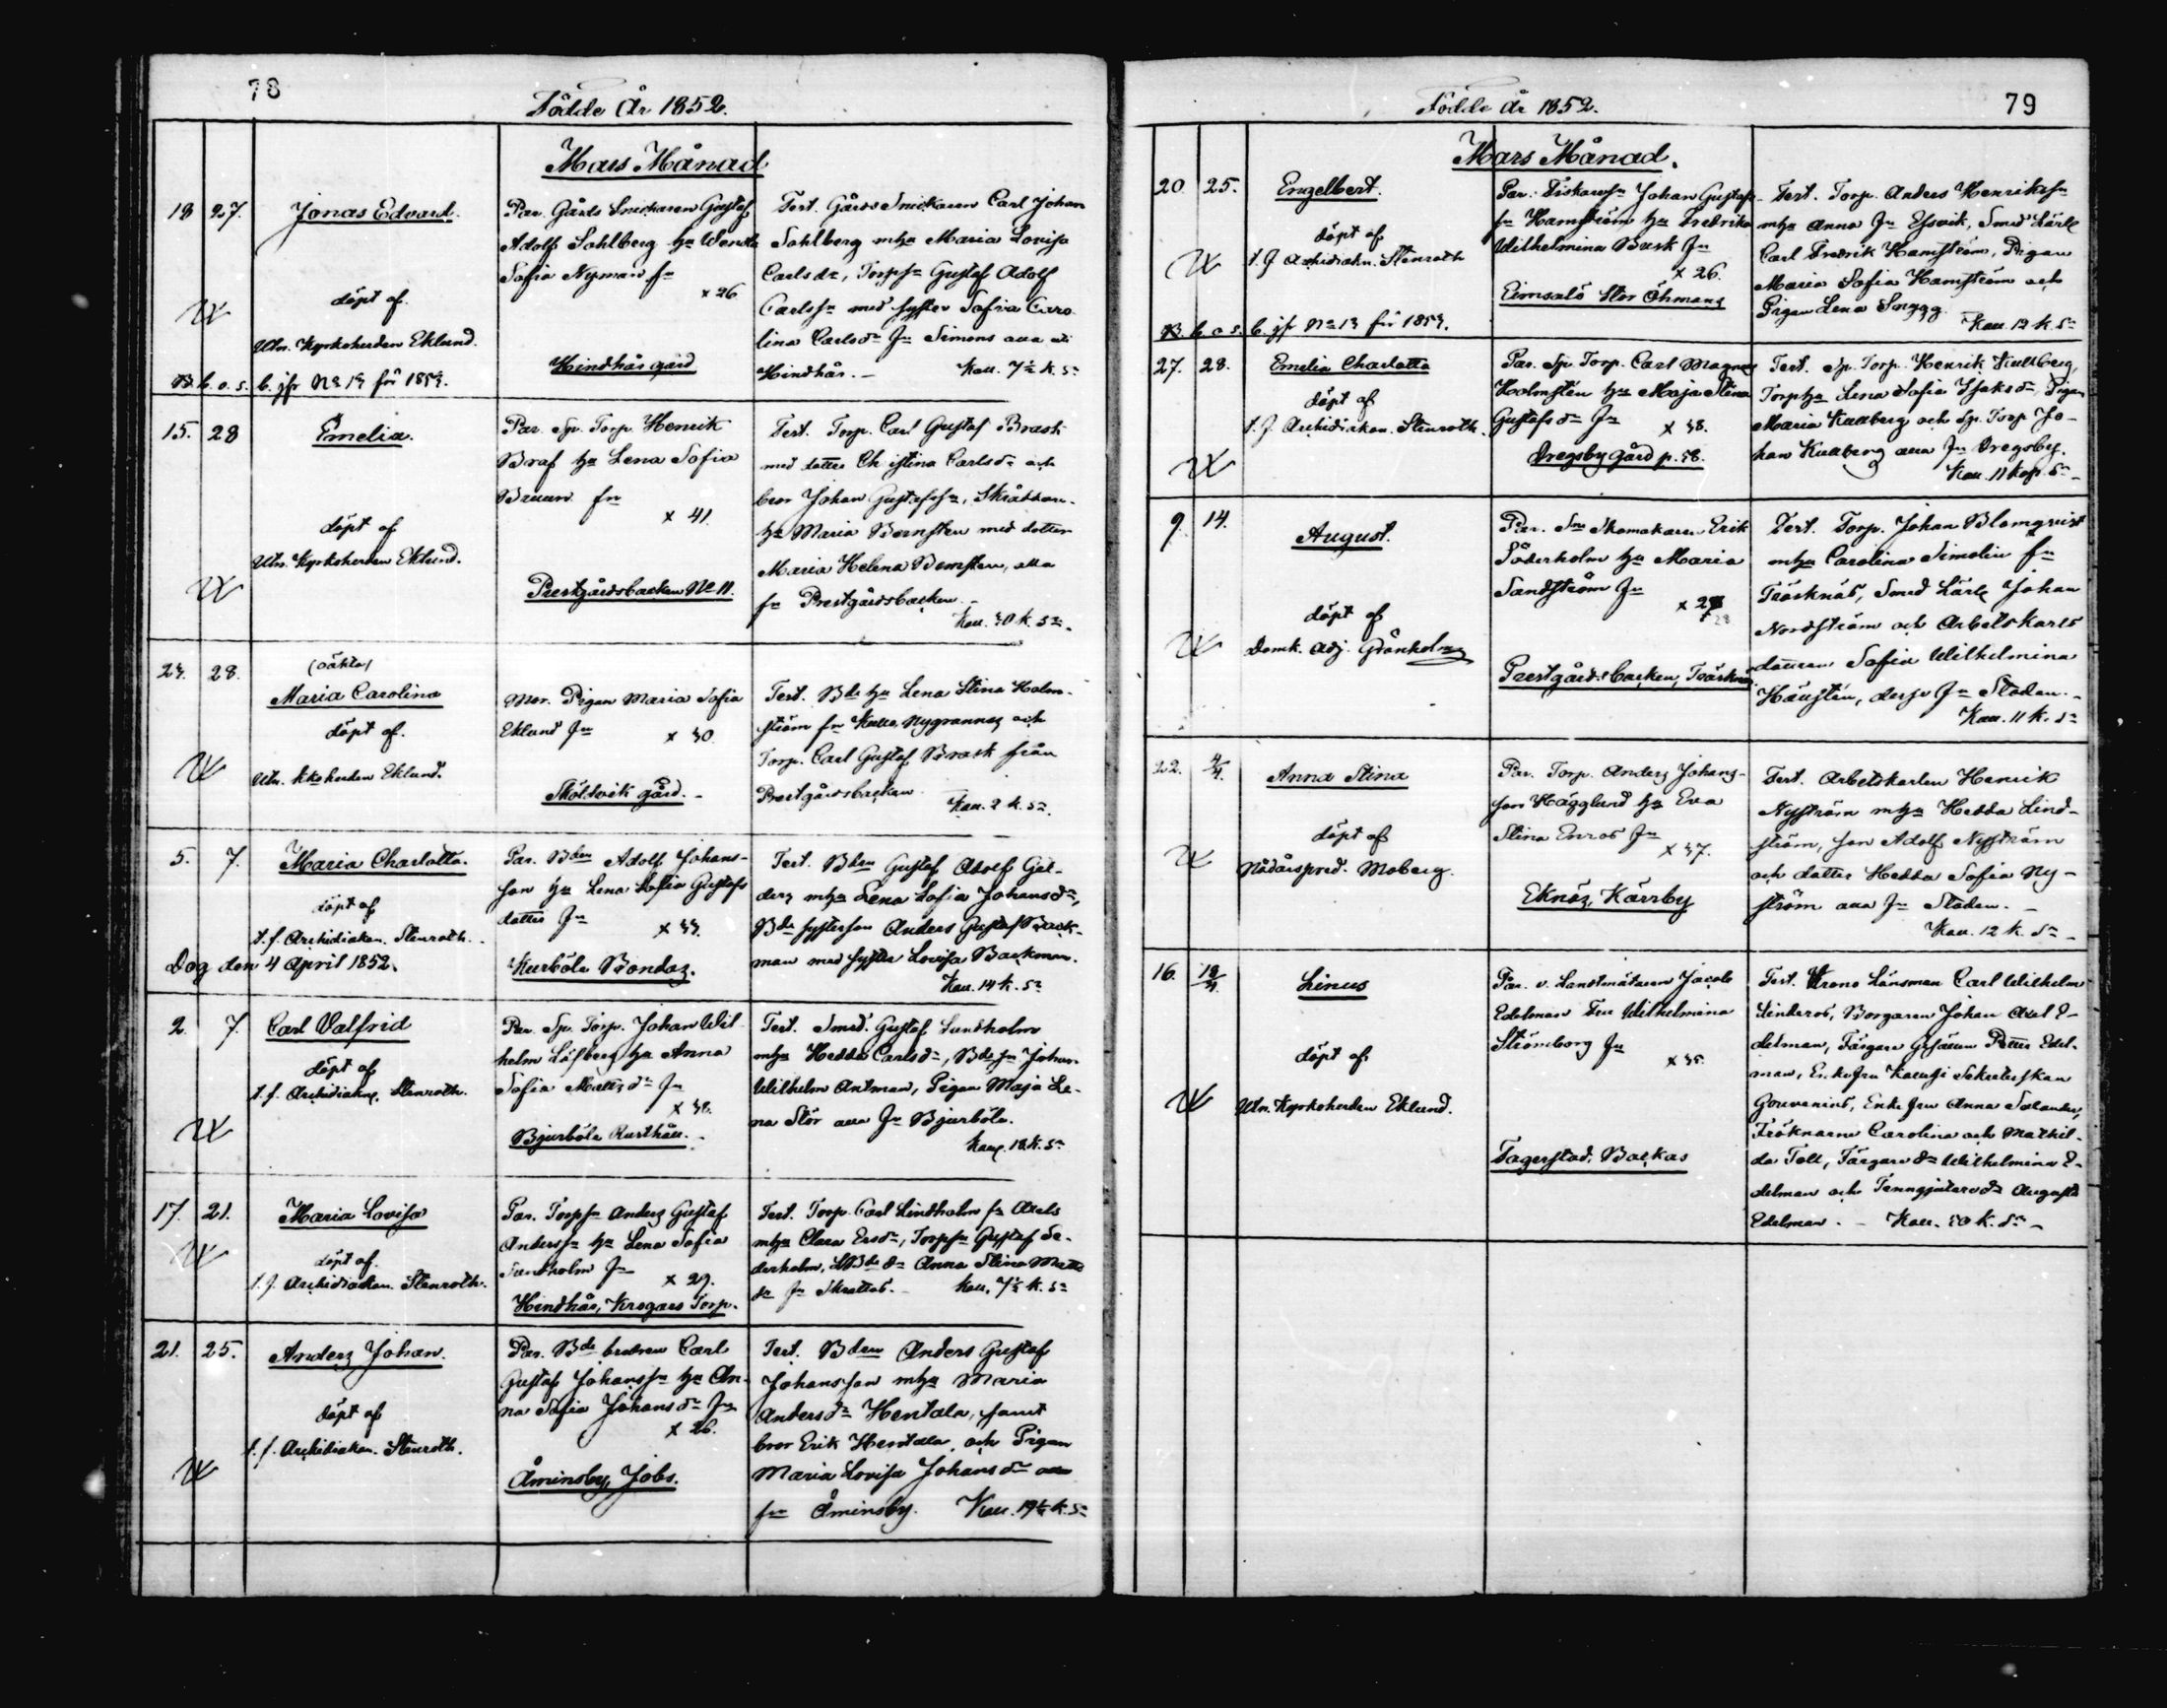 78
Födde År 1852.
Mars Månad
18 27. Jonas Edvard.
döpt af
Utn. Kyrkoherden Eklund.
B. b. o. s. b. jfr No 13 för 1853.
Par. Gårds Snickaren Gustaf
Adolf Sahlberg hu Wendla
Sofia Nyman fr
x 26
Hindhår gård
Test. Gårds Snickaren Carl Johan
Sahlberg mhu Maria Lovisa
Carlsdr, Torpsn Gustaf Adolf
Carlssn med syster Sofia Caro
lina Carlsdr fr Simons alla
Hindhår. - Koll. 7½ k. Sr
15. 28 Emelia.
döpt af
Utn. Kyrkoherden Eklund.
Par. Sp. Torp. Henrik
Braf hu Lena Sofia
Bruun fr
x 41
Prestgårdsbacken No 11.
Test. Torp. Carl Gustaf Brask
med dotter Christina Carlsdr och
bror Johan Gustafssn,
hu Maria Bernsten med dotter
Maria Helena Bernsten, alla
fr Prestgårdsbacken. -
Koll. 30 k. Sr.
23. 28. (oäkta)
Maria Carolina
döpt af.
Utn. Kkoherden Eklund.
Mor. Pigan Maria Sofia
Eklund fr x 30
Sköldvik gård. -
Test. Bde hu Lena Stina Holm-
ström fr Kulla Nygrannas och
Torp. Carl Gustaf Brask från
Prestgårdsbacken
Koll. 2 k. Sr.
5. 7. Maria Charlotta.
döpt af
t. f. Archidiakon. Stenroth.
Dog den 4 April 1852.
Par. Bden Adolf Johans-
son hu Lena Sofia Gustafs
dotter fr
x 33.
Kurböle Bondas.
Test. Bden Gustaf Adolf Gel-
ders mhu Lena Sofia Johansdr,
Bde systerson Anders Gustaf Back-
man med syster Lovisa Backman.
Koll. 14 k. Sr
2. 7. Carl Valfrid
döpt af
t. f. Archidiakon. Stenroth.
Par. Sp. Torp. Johan Wil
helm Löfberg hu Anna
Sofia Mattsdr fr
x 38.
Bjurböle Rusthåll. -
Test. Smed. Gustaf Lundholm
mhu Hedda Carlsdr, Bdesn Johan
Wilhelm Antman, Pigan Maja Le-
na Stör alla fr Bjurböle.
Koll. 18 k. Sr
17. 21. Maria Lovisa
döpt af
t. f. Archidiakon. Stenroth.
Par. Torpsn Anders Gustaf
Anderssn hu Lena Sofia
Sundholm fr x 29.
Hindhår, Krogars Torp.
Test. Torp. Carl Lindholm fr Axels
mhu Clara Ersdr, Torpsn Gustaf Se-
derholm, Bde dr Anna Stina Matts
dr fr Skrattas. - Koll. 7½ k. Sr
21. 25. Anders Johan.
döpt af
t. f. Archidiakon. Stenroth.
Par. Bde brodren Carl
Gustaf Johanssn hu An-
na Sofia Johansdr fr
x 26.
Åminsby, Jobs.
Test. Bden Anders Gustaf
Johansson mhu Maria
Andersdr Hentala, samt
bror Erik Hentala och Pigan
Maria Lovisa Johansdr alla
fr Åminsby. Koll. 19½ k. Sr
79
Födde år 1852.
Mars Månad.
20. 25. Engelbert.
döpt af
t. f. Archidiakon. Stenroth
B. b. o. s. b. jfr No 13 för 1853.
Par. Fiskaresn Johan Gustafs-
sn Hamström hu Fredrika
Wilhelmina Busk fr
x 26.
Eimsalö Stor Öhmans
Test. Torp. Anders Henrikssn
mhu Anna fr Essvik, Smed Lärl
Carl Fredrik Hamström, Pigan
Maria Sofia Hamström och
Pigan Lena Snygg.
Koll. 12 k. Sr
27. 28. Emelia Charlotta
döpt af
t. f. Archidiakon. Stenroth.
Par. Sp. Torp. Carl Magnus
Holmsten hu Maja Stina
Gustafsdr fr x 38.
Dregsby Gård p. 58.
Test. Sp. Torp. Henrik Kullberg,
Torphu Lena Sofia Isaksdr, Pigan
Maria Kullberg och Sp. Torp Jo-
han Kullberg alla fr Dregsby.
Koll. 11 kop. Sr -
9. 14. August.
döpt af
Domk. Adj. Grönholm
Par. Skomakaren Erik
Söderholm hu Maria
Sandström fr
x 27
28
Prestgårdsbacken, Träsknäs
Test. Torp. Johan Blomqvist
mhu Carolina Simolin fr
Träsknäs, Smed Lärl Johan
Nordström och Arbetskarls
dottren Sofia Wilhelmina
Hällstén, desse fr Staden. -
Koll. 11 k. Sr
22. 4/4. Anna Stina
döpt af
Nådårspred. Moberg.
Par. Torp. Anders Johans-
son Hägglund hu Eva
Stina Enros fr
x 37.
Eknäs, Kärrby
Test. Arbetskarlen Henrik
Nyström mhu Hedda Lind-
ström, son Adolf Nyström
och dotter Hedda Sofia Ny-
ström alla fr Staden. -
Koll. 12 k. Sr -
16. 18/4. Linus
döpt af
Utn. Kyrkoherden Eklund.
Par. v. Landtmätaren Jacob
Edelman Fru Wilhelmina
Strömborg fr
x 35.
Fagerstad, Backas
Test. Krono Länsman Carl Wilhelm
Linderos, Borgaren Johan Axel E-
delman, Färgare Gesällen Petter Edel-
man, Enkefru Kollegi Sekreterskan
Gouvenius, Enke fru Anna Solander,
Fröknarne Carolina och Mathil-
da Toll, Färgare dr Wilhelmina E-
delman och Tenngjutare dr Augusta
Edelman. - Koll. 50 k. Sr -